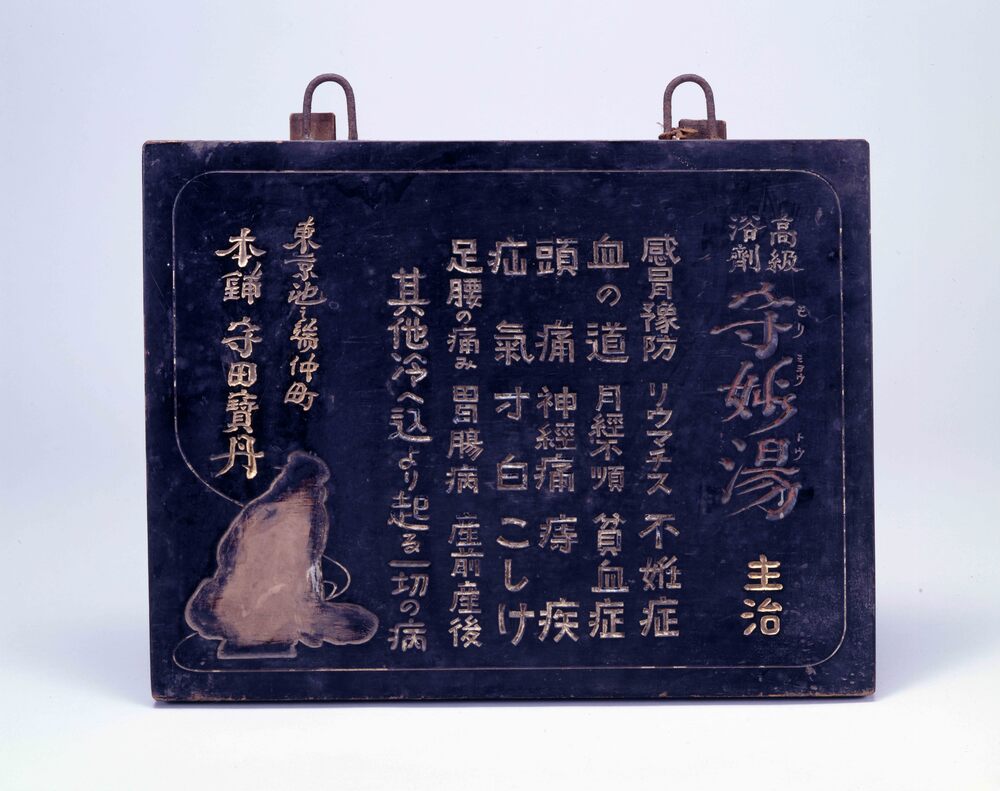 高級
浴劑
守妙湯
モリ ミヨウ トウ
主治
感冒豫防 リウマチス 不姙症
血の道 月經不順 貧血症
頭痛 神經痛 痔疾
疝氣 才白 こしけ
足腰の痛み 胃腸病 産前産後
其他冷へ込より起る一切の病
東京池之端仲町
本鋪 守田寶丹